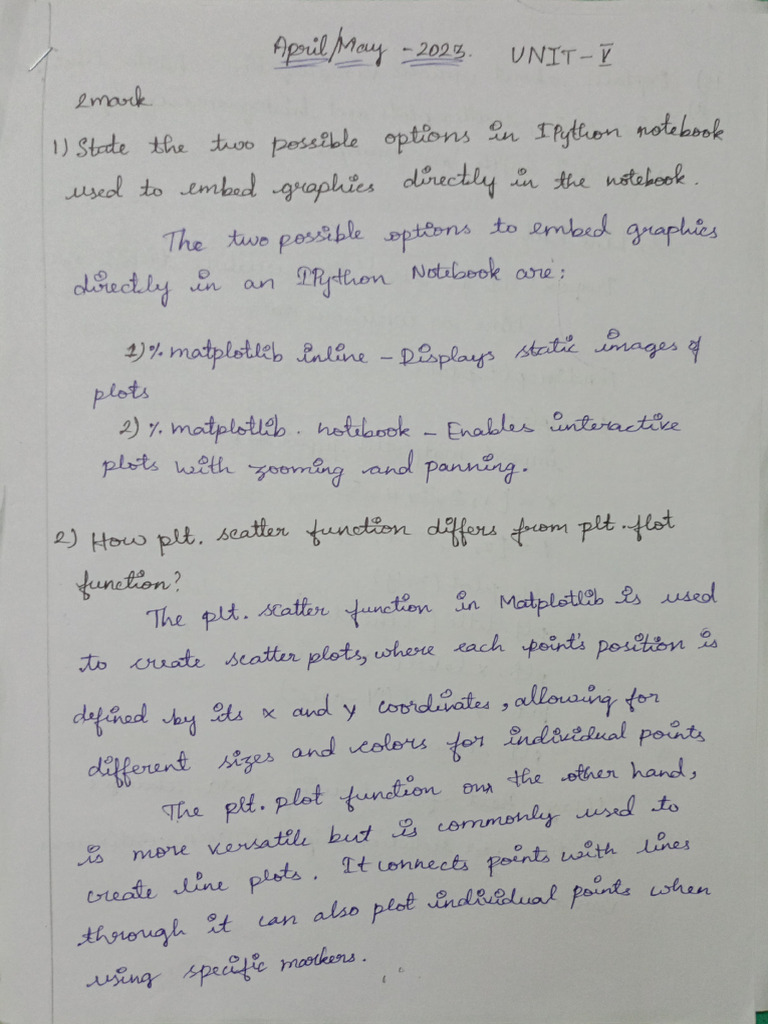 April/May - 2023. UNIT - V
2mark
1) State the two possible options in IPython notebook
used to embed graphics directly in the notebook.
The two possible options to embed graphics
directly in an IPython Notebook are:
1) % matplotlib inline - Displays static images of
plots
2) % matplotlib . notebook - Enables interactive
plots with zooming and panning.
2) How plt. scatter function differs from plt. flot
function?
The plt. scatter function in Matplotlib is used
to create scatter plots, where each point's position is
defined by its x and y coordinates, allowing for
different sizes and colors for individual points
The plt. plot function on the other hand,
is more versatile but is commonly used to
create line plots. It connects points with lines
through it can also plot individual points when
using specific markers.